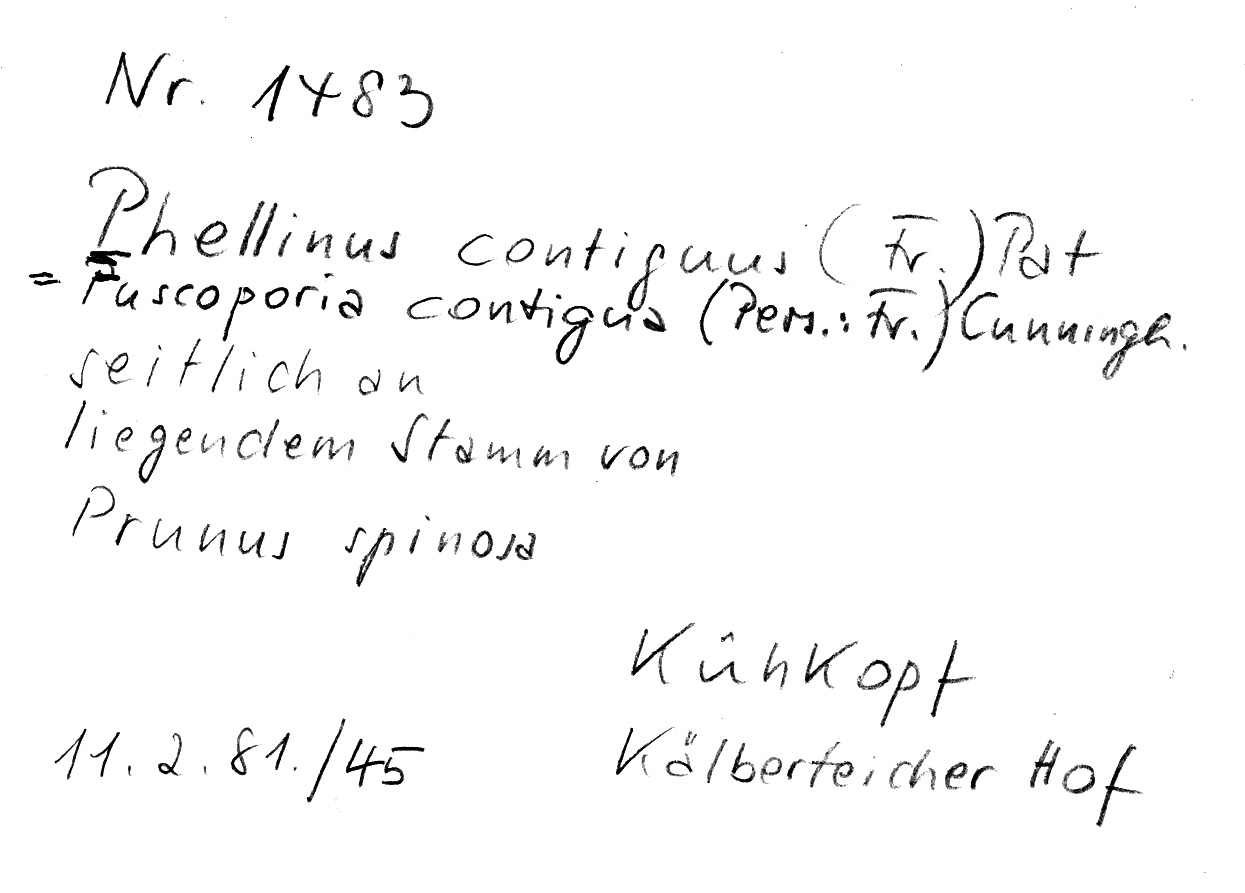 Nr. 1483
Phellinus contiguus (Fr.) Pat
= Fuscoporia contigua (Pers.: Fr.) Cunningh.
seitlich an
liegendem Stamm von
Prunus spinosa
Kühkopf
11.2.81./45 Kälberteicher Hof